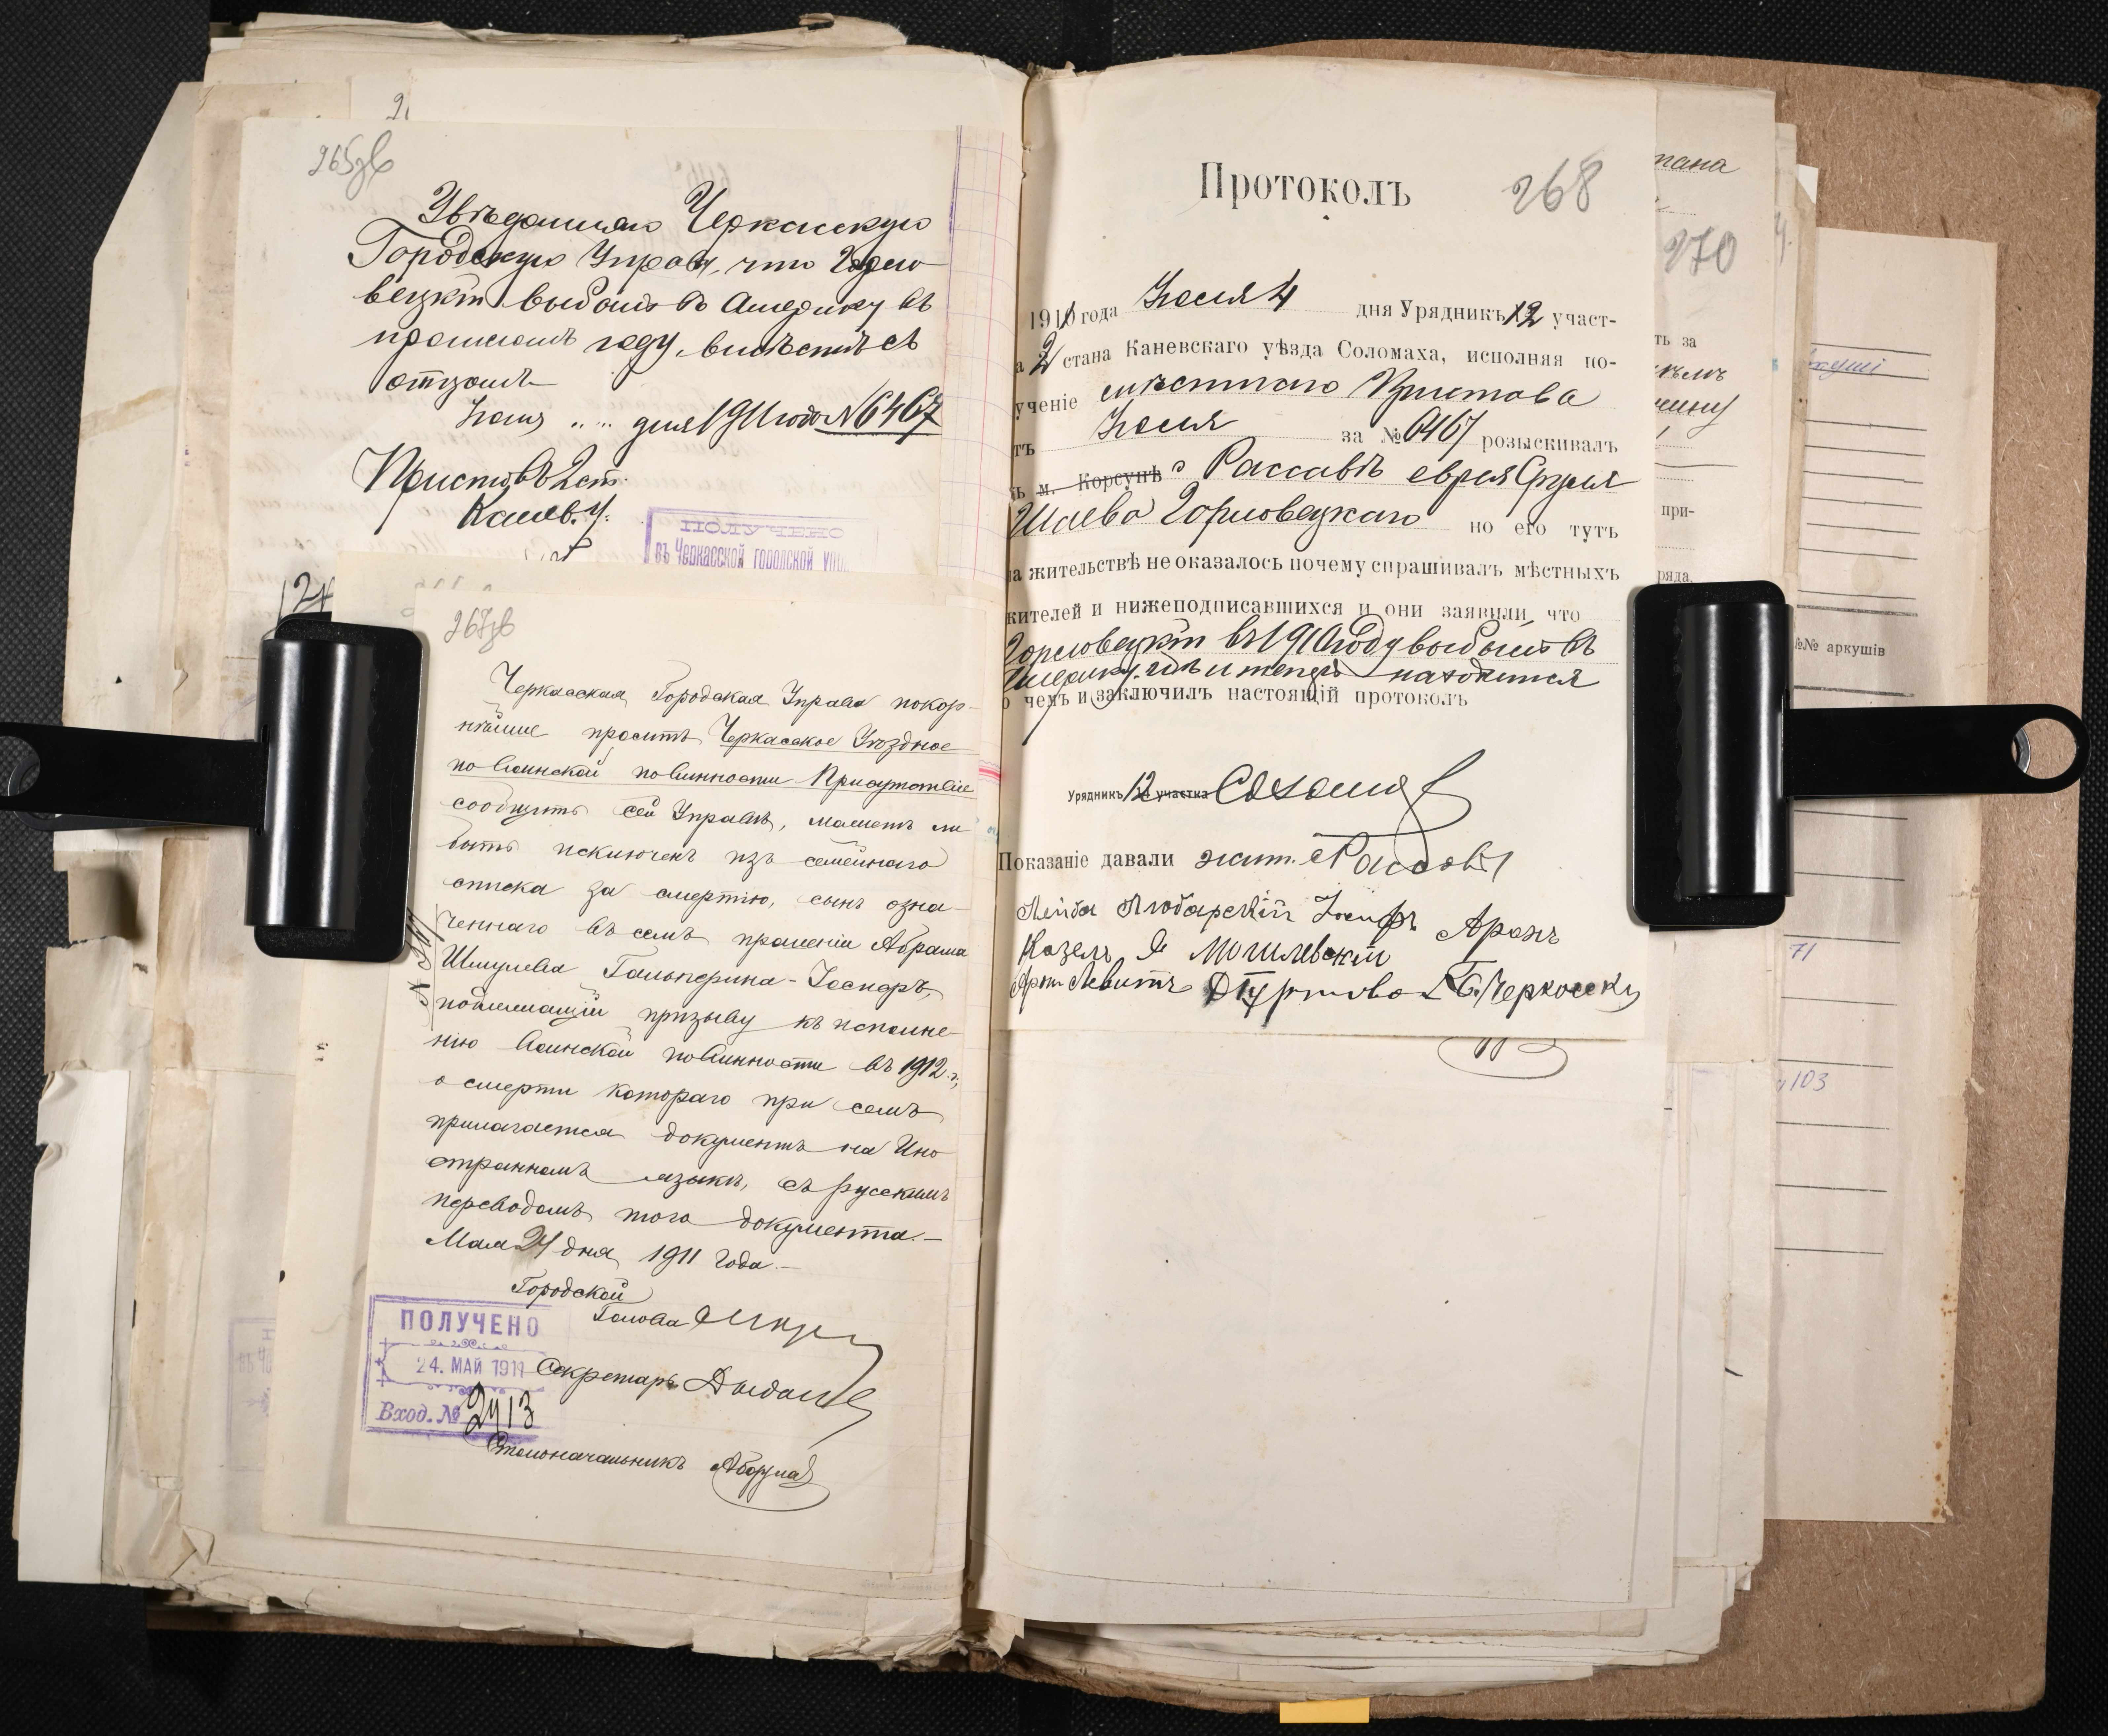 265зв
Увѣдомляю Черкасскую
Городскую Управу, что Горло-
вецкій выбылъ въ Америку въ
прошломъ году, вмѣстѣ съ
отцомъ
Іюля "..." дня 1911 года № 6467
Приставъ 2 ст.
Канев. у.
ПОЛУЧЕНО
въ Черкасской городской упр
267зв
Черкасская Городская Управа покор-
нѣйше проситъ Черкасское Уѣздное
по воинской повинности Присутствіе
сообщить сей Управѣ, можетъ ли
быть исключенъ изъ семейнаго
списка за смертію, сынъ озна-
ченнаго въ семъ прошеніи Абрама
Шмулева Гальперина - Іосифъ,
подлежащій призыву къ исполне-
нію воинской повинности въ 1912 г.,
о смерти котораго при семъ
прилагается документъ на Ино
странномъ языкѣ, съ русскимъ
переводомъ того документа.-
Мая 24 дня 1911 года.-
Городской
Голова
ПОЛУЧЕНО
24. МАЙ 1911
Вход. № 2413
Секретарь
Столоначальникъ
Протоколъ
268
1911 года Іюля 4 дня Урядникъ 12 участ-
а 2 стана Каневскаго уѣзда Соломаха, исполняя по-
ученіе мѣстнаго Пристава
тъ Іюля за № 6467 розыскивалъ
ъ м. Корсунѣ с Рассавѣ еврея Сруля
Шаева Горловецкаго но его тутъ
на жительствѣ не оказалось почему спрашивалъ мѣстныхъ
жителей и нижеподписавшихся и они заявили, что
Горловецкій въ 1910 году выбылъ въ
Америку, гдѣ и теперь находится
о чемъ и заключилъ настоящій протоколъ
Урядникъ 12 участка Соломаха
Показаніе давали жит. с Рассавы
Лейба Любарскій Іосифъ Аронъ
Козелъ Я Могилевскій
Левитъ
270
№№ аркушів
71
103